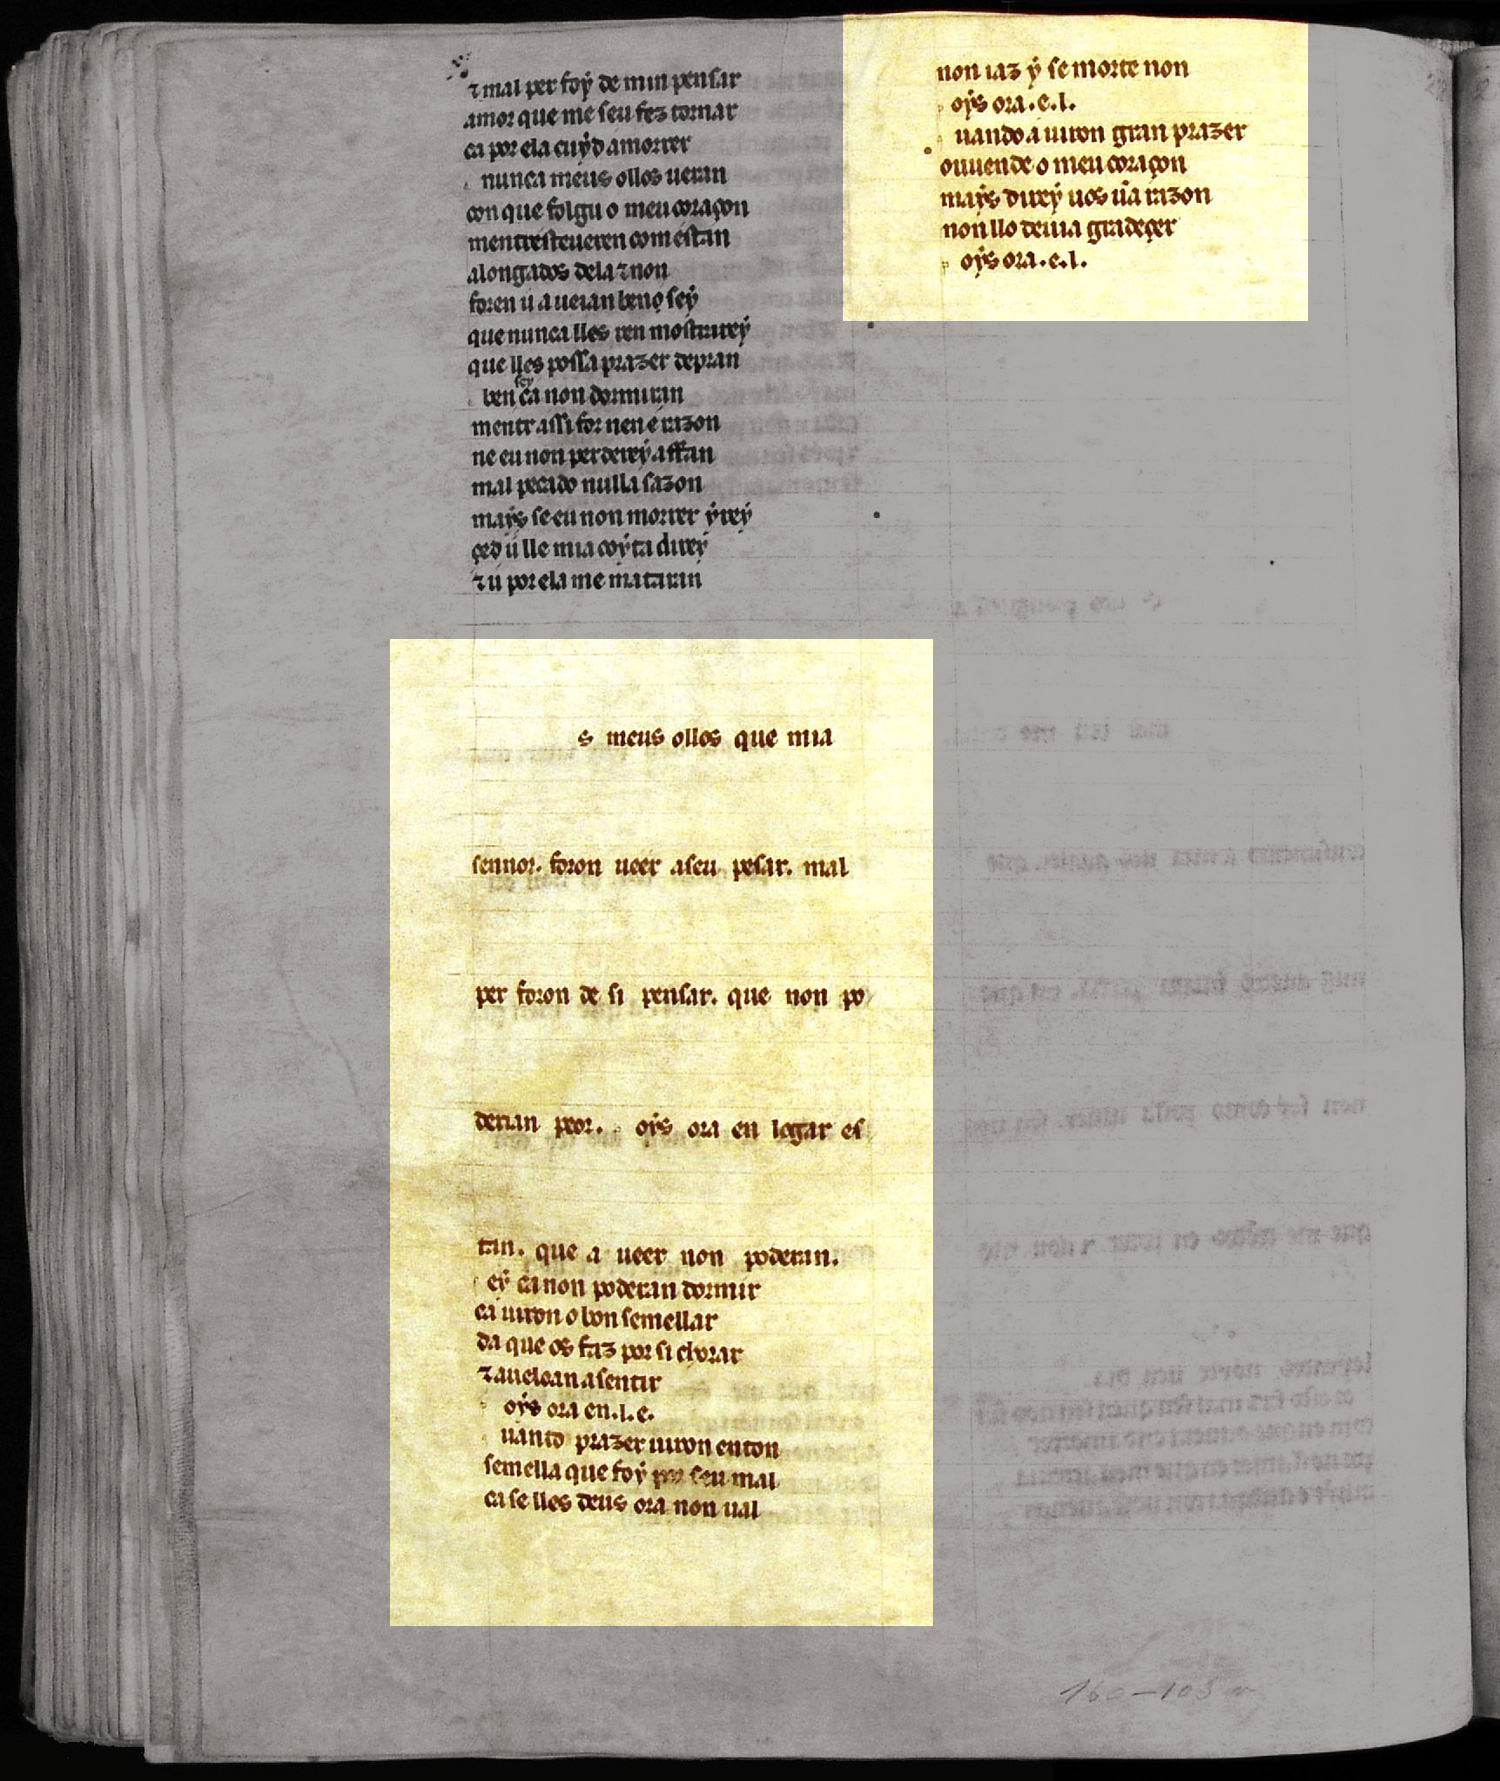 ⁊ mal per foy de min pensar
amor que me seu fez tornar
ca por ela cuyd amorrer
nunca meus ollos ueran
con que folgu o meu coraçon
mentresteueren com estan
alongados dela ⁊ non
foren u a ueian beno sey
que nunca lles ren mostrarey
que lles possa prazer depran
ben sey ca non dormiran
mentr assi for nen e razon
ne eu non perderey affan
mal pecado nulla sazon
mays se eu non morrer yrey
ced u lle mia coyta direy
⁊ u por ela me mataran
s meus ollos que mia
sennor. foron ueer aseu pesar. mal
per foron de si pensar. que non po
derian peor. oys ora en logar es
tan. que a ueer non poderan.
ey ca non poderan dormir
ca uiron o bon semellar
da que os faz por si chorar
⁊ auelo an a sentir
oys ora en .l. e.
uanto prazer uiron enton
semella que foy por seu mal
ca se lles deus ora non ual
non iaz y se morte non
oys ora .e. l.
uando a uiron gran prazer
ouuende o meu coraçon
mays direy uos ũa razon
non llo deuia gradeçer
oys ora .e. l.
160–103